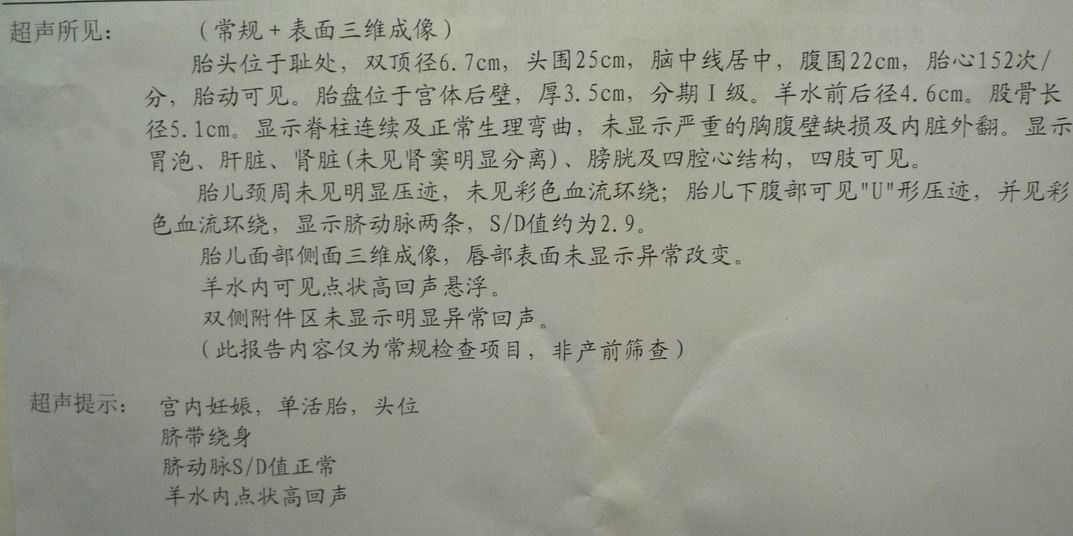 超声所见： （常规+表面三维成像）
胎头位于耻处，双顶径6.7cm，头围25cm，脑中线居中，腹围22cm，胎心152次/
分，胎动可见。胎盘位于宫体后壁，厚3.5cm，分期Ⅰ级。羊水前后径4.6cm。股骨长
径5.1cm。显示脊柱连续及正常生理弯曲，未显示严重的胸腹壁缺损及内脏外翻。显示
胃泡、肝脏、肾脏(未见肾窦明显分离)、膀胱及四腔心结构，四肢可见。
胎儿颈周未见明显压迹，未见彩色血流环绕；胎儿下腹部可见"U"形压迹，并见彩
色血流环绕，显示脐动脉两条，S/D值约为2.9。
胎儿面部侧面三维成像，唇部表面未显示异常改变。
羊水内可见点状高回声悬浮。
双侧附件区未显示明显异常回声。
（此报告内容仅为常规检查项目，非产前筛查）
超声提示： 宫内妊娠，单活胎，头位
脐带绕身
脐动脉S/D值正常
羊水内点状高回声